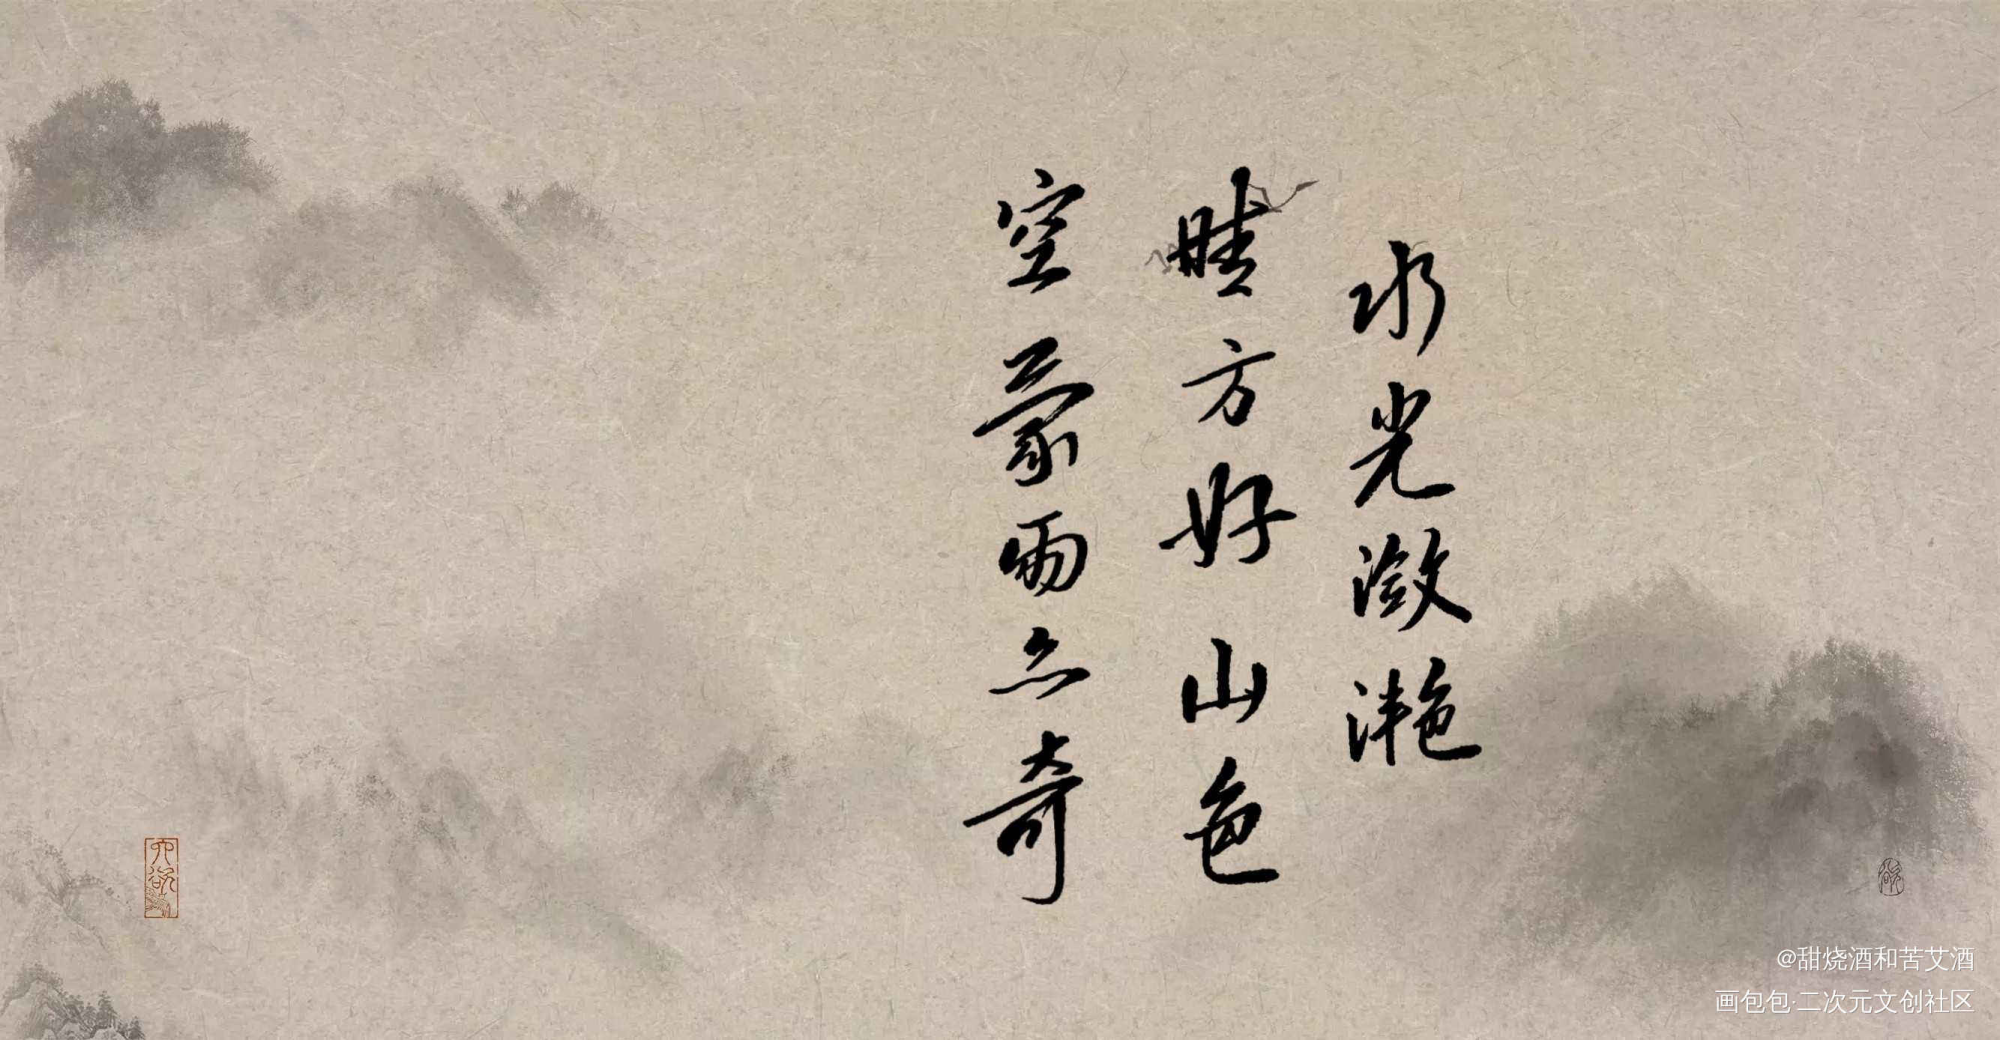 水光潋滟
晴方好山色
空蒙雨亦奇
@甜烧酒和苦艾酒
画包包·二次元文创社区